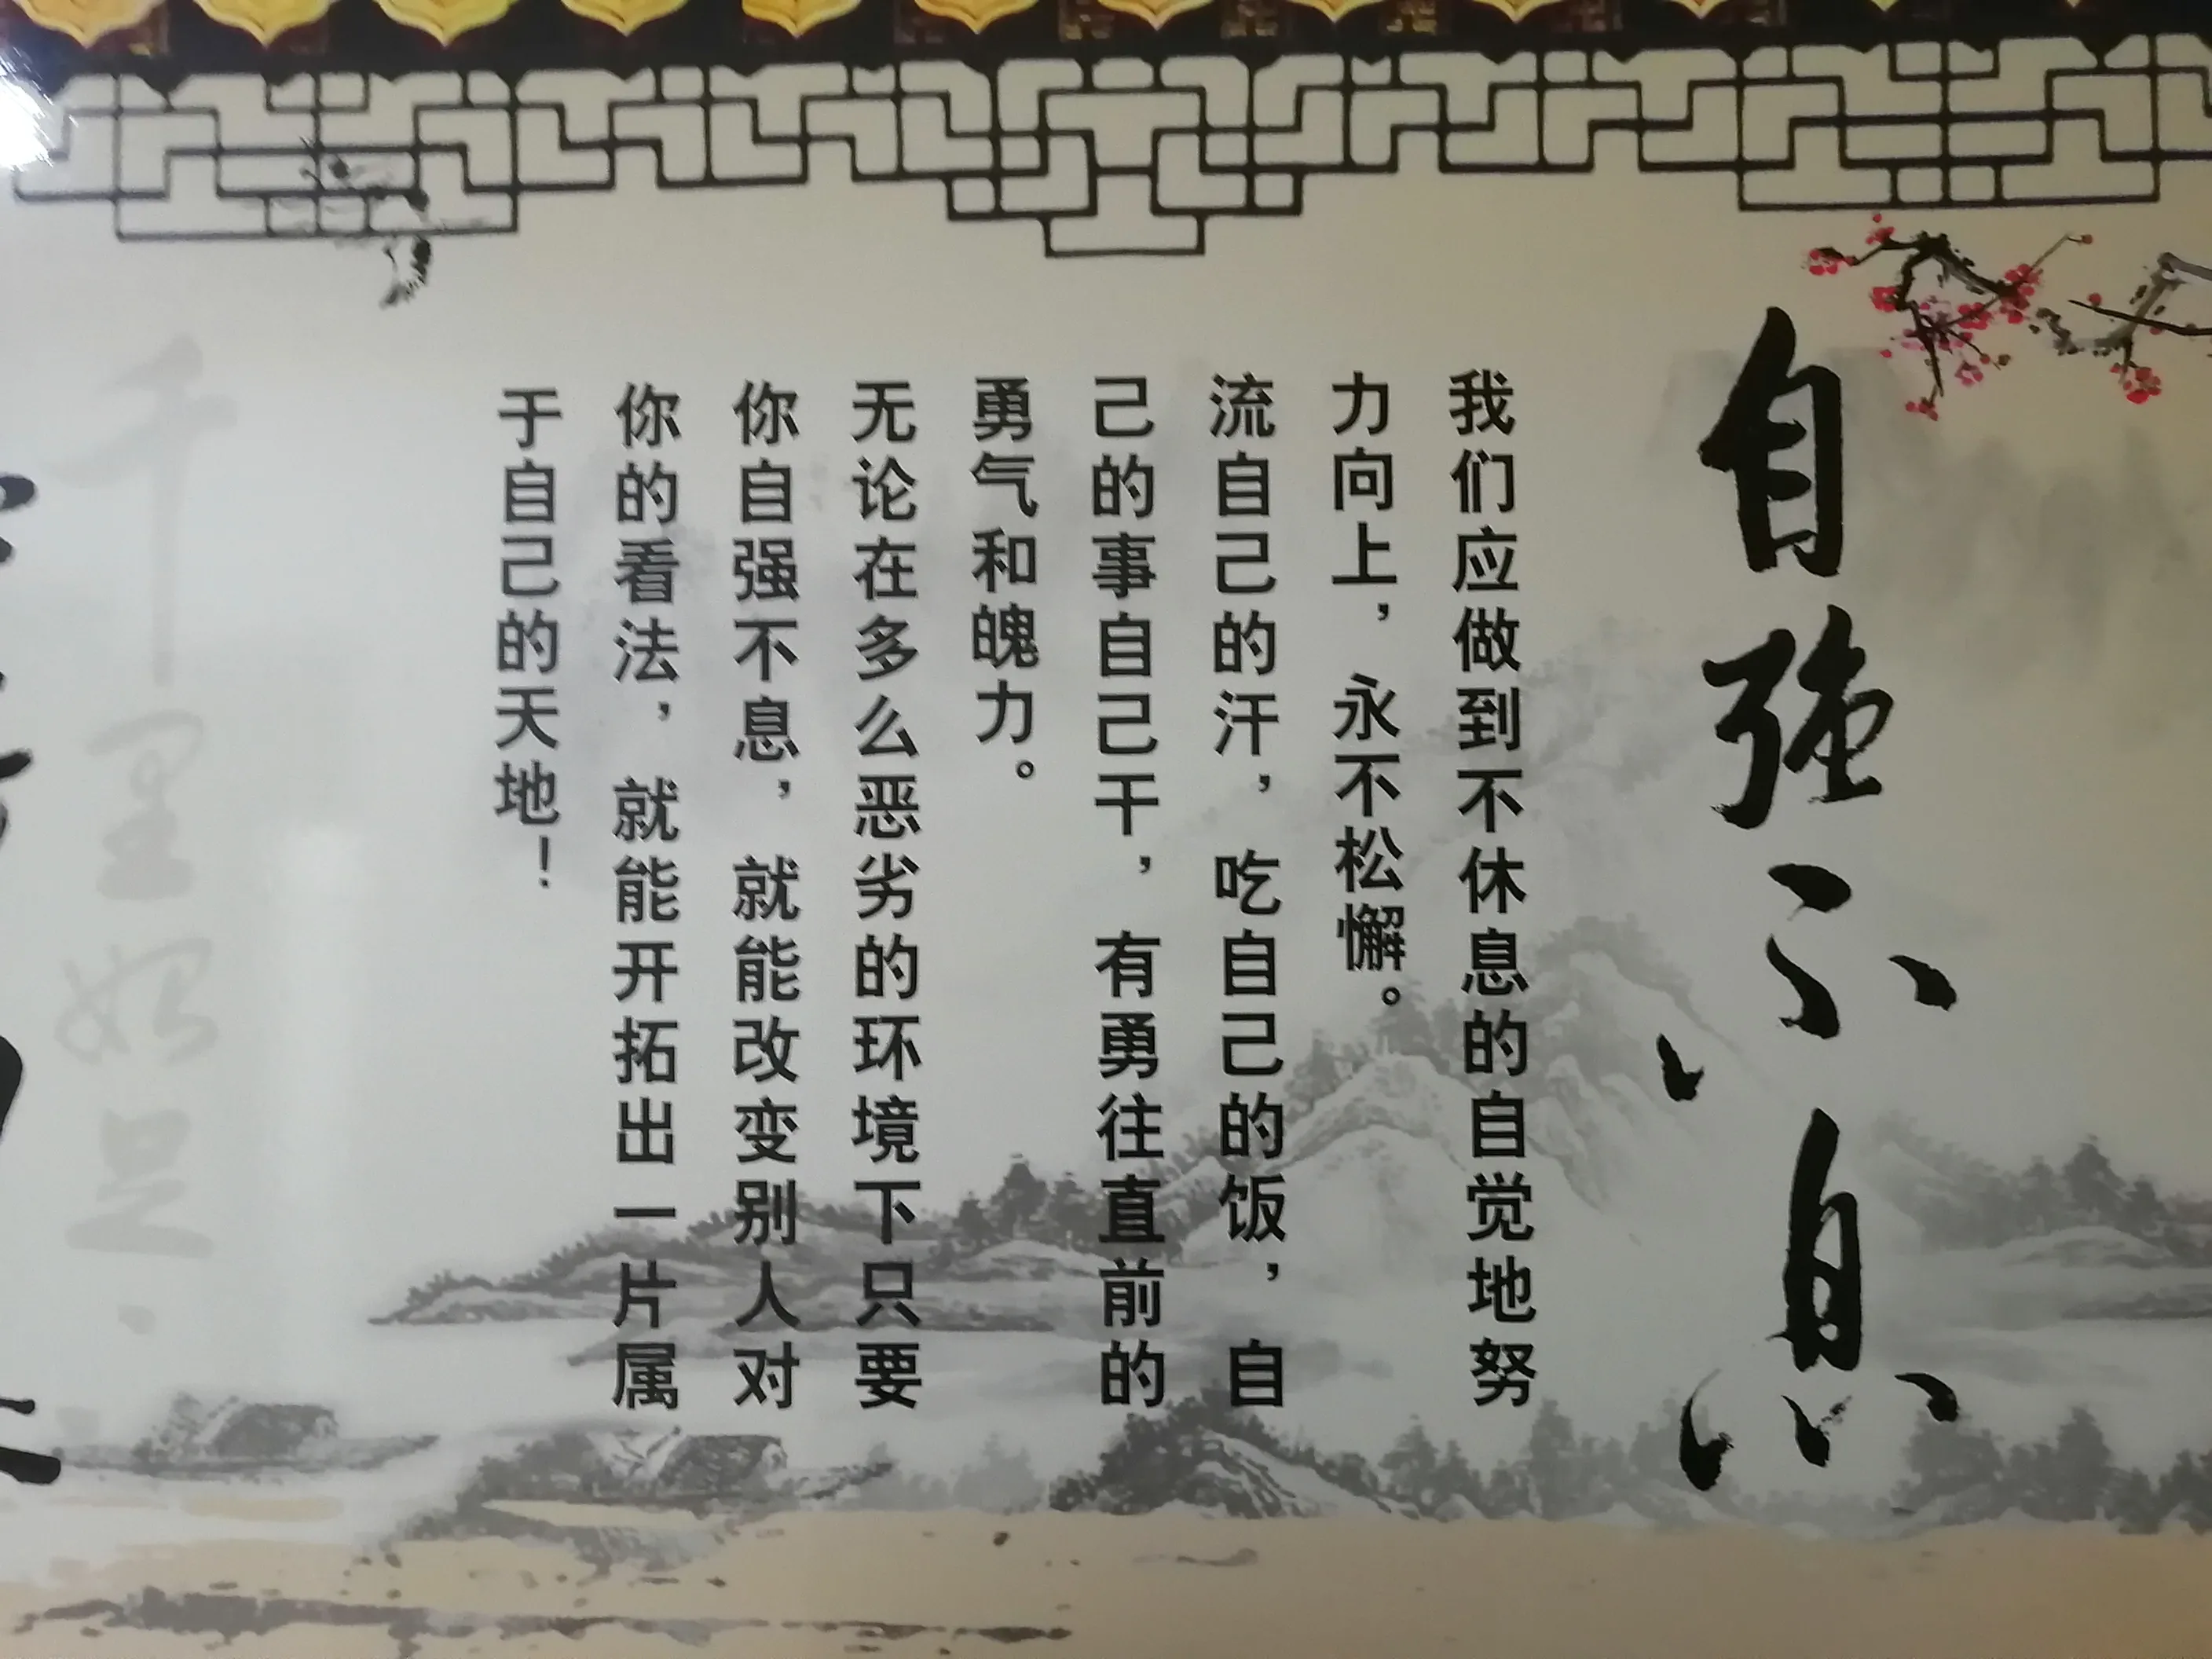 自强不息
我们应做到不休息的自觉地努
力向上，永不松懈。
流自己的汗，吃自己的饭，自
己的事自己干，有勇往直前的
勇气和魄力。
无论在多么恶劣的环境下只要
你自强不息，就能改变别人对
你的看法，就能开拓出一片属
于自己的天地！
千里始足